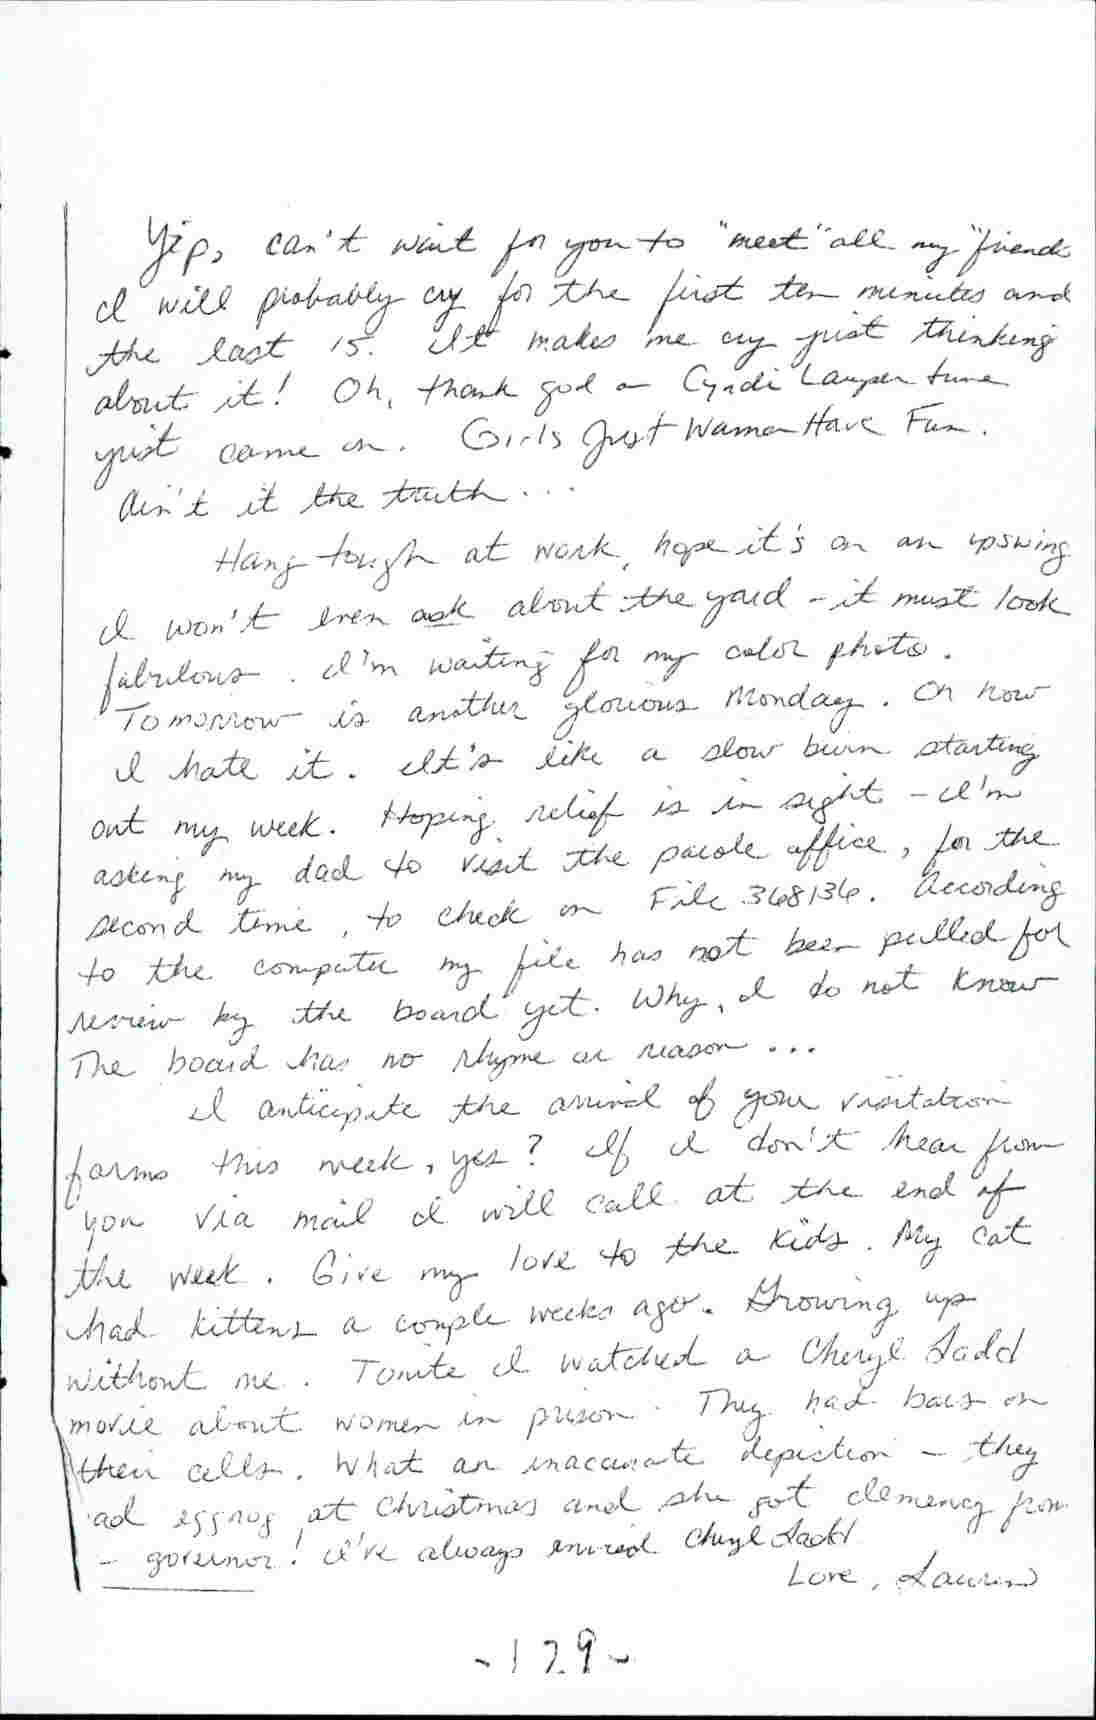 Yep, can't wait for you to "meet" all my "friends
I will probably cry for the first ten minutes and
the last 15. It makes me cry just thinking
about it! Oh, thank god a Cyndi Lauper tune
just came on. Girls Just Wanna Have Fun.
Ain't it the truth...
Hang tough at work, hope it's on an upswing
I won't even ask about the yard - it must look
fabulous. I'm waiting for my color photo.
Tomorrow is another glorious Monday. Oh how
I hate it. It's like a slow burn starting
out my week. Hoping relief is in sight - I'm
asking my dad to visit the parole office, for the
second time, to check on File 368136. According
to the computer my file has not been pulled for
review by the board yet. Why, I do not know
The board has no rhyme or reason...
I anticipate the arrival of your visitation
forms this week, yes? If I don't hear from
you via mail I will call at the end of
the week. Give my love to the kids. My cat
had kittens a couple weeks ago. Growing up
without me. Tonite I watched a Cheryl Ladd
movie about women in prison. They had bars on
their cells. What an inaccurate depiction - they
ad eggnog at Christmas and she got clemency from
- governor! I've always envied Cheryl Ladd
Love,
-129-